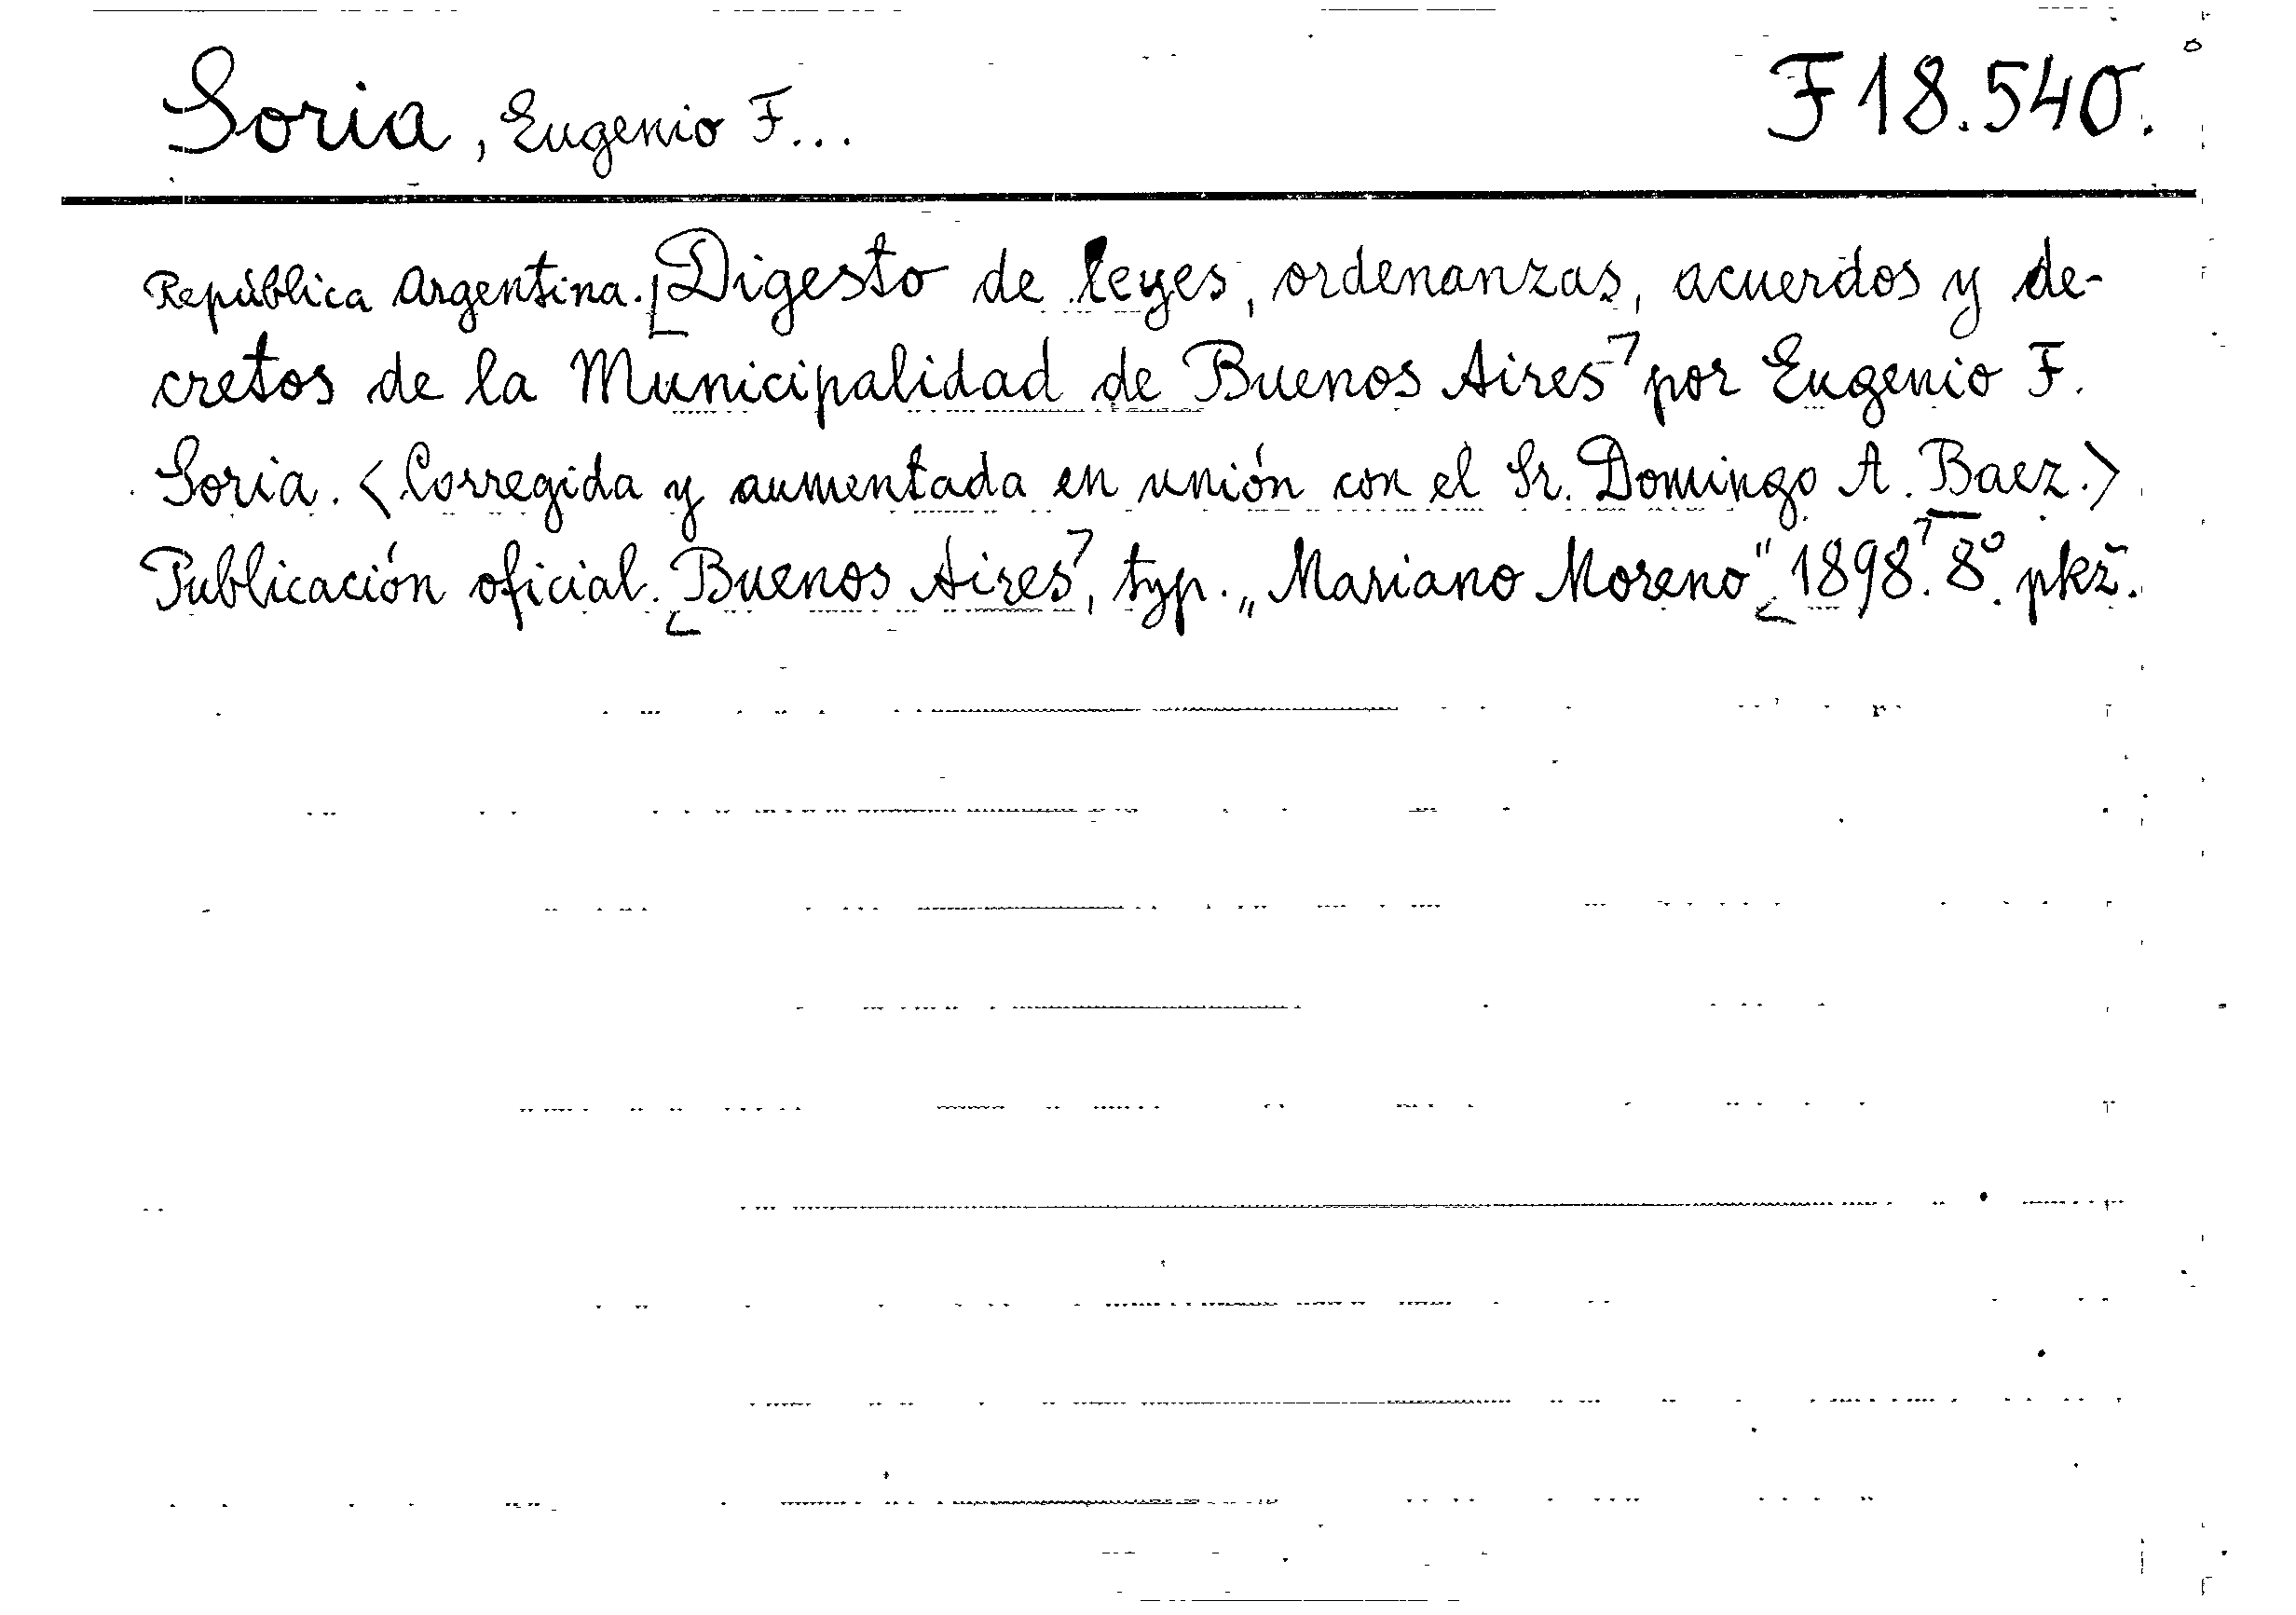 Soria, Eugenio F... F 18.540.
República Argentina. [Digesto de leyes, ordenanzas, acuerdos y de-
cretos de la Municipalidad de Buenos Aires] por Eugenio F.
Soria. <Corregida y aumentada en unión con el Sr. Domingo A. Baez.>
Publicación oficial. [Buenos Aires], typ. „Mariano Moreno" [1898]. 8° pkž.